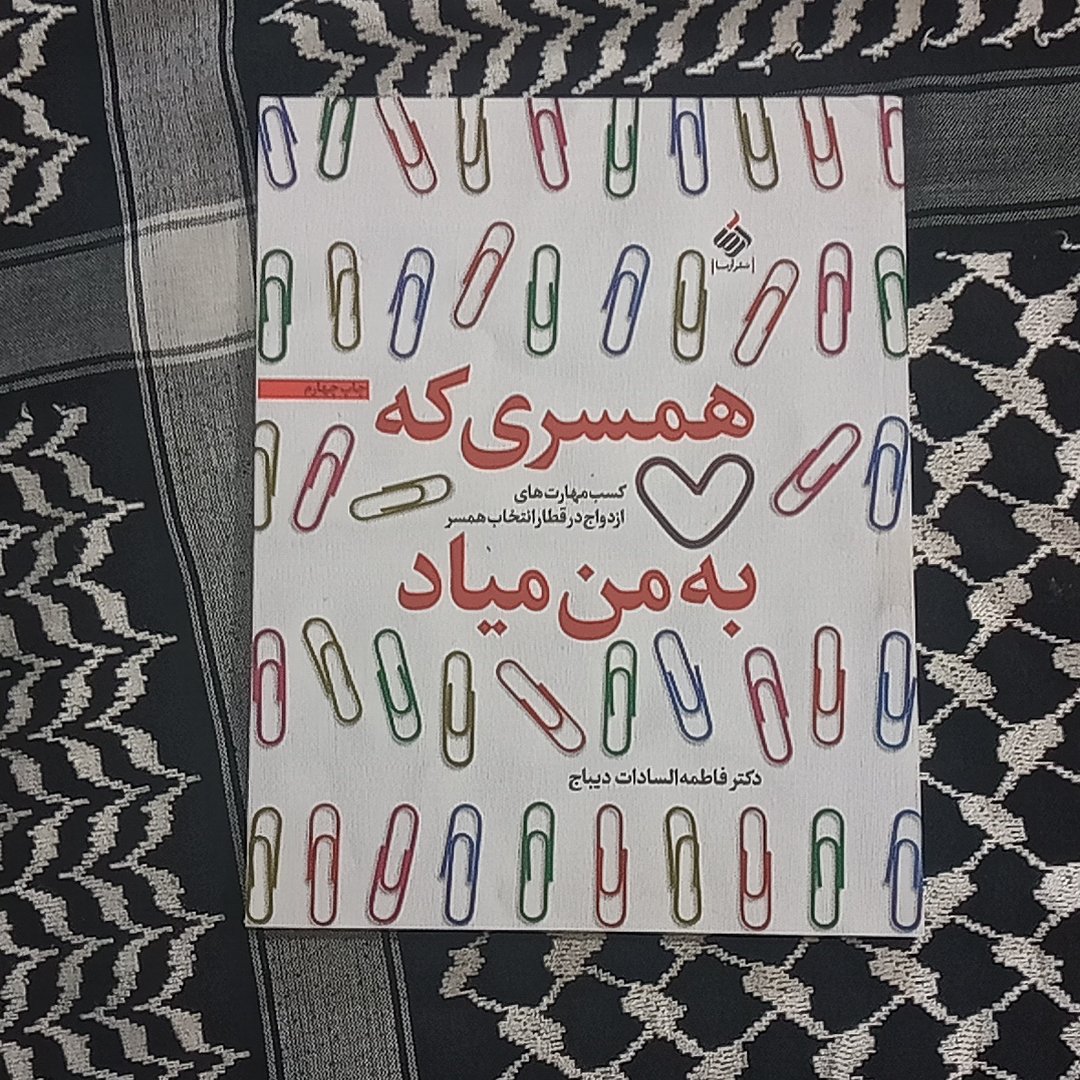 نشر آرما
چاپ چهارم
همسری که
کسب مهارت‌های
ازدواج در قطار انتخاب همسر
به من میاد
دکتر فاطمه السادات دیباج